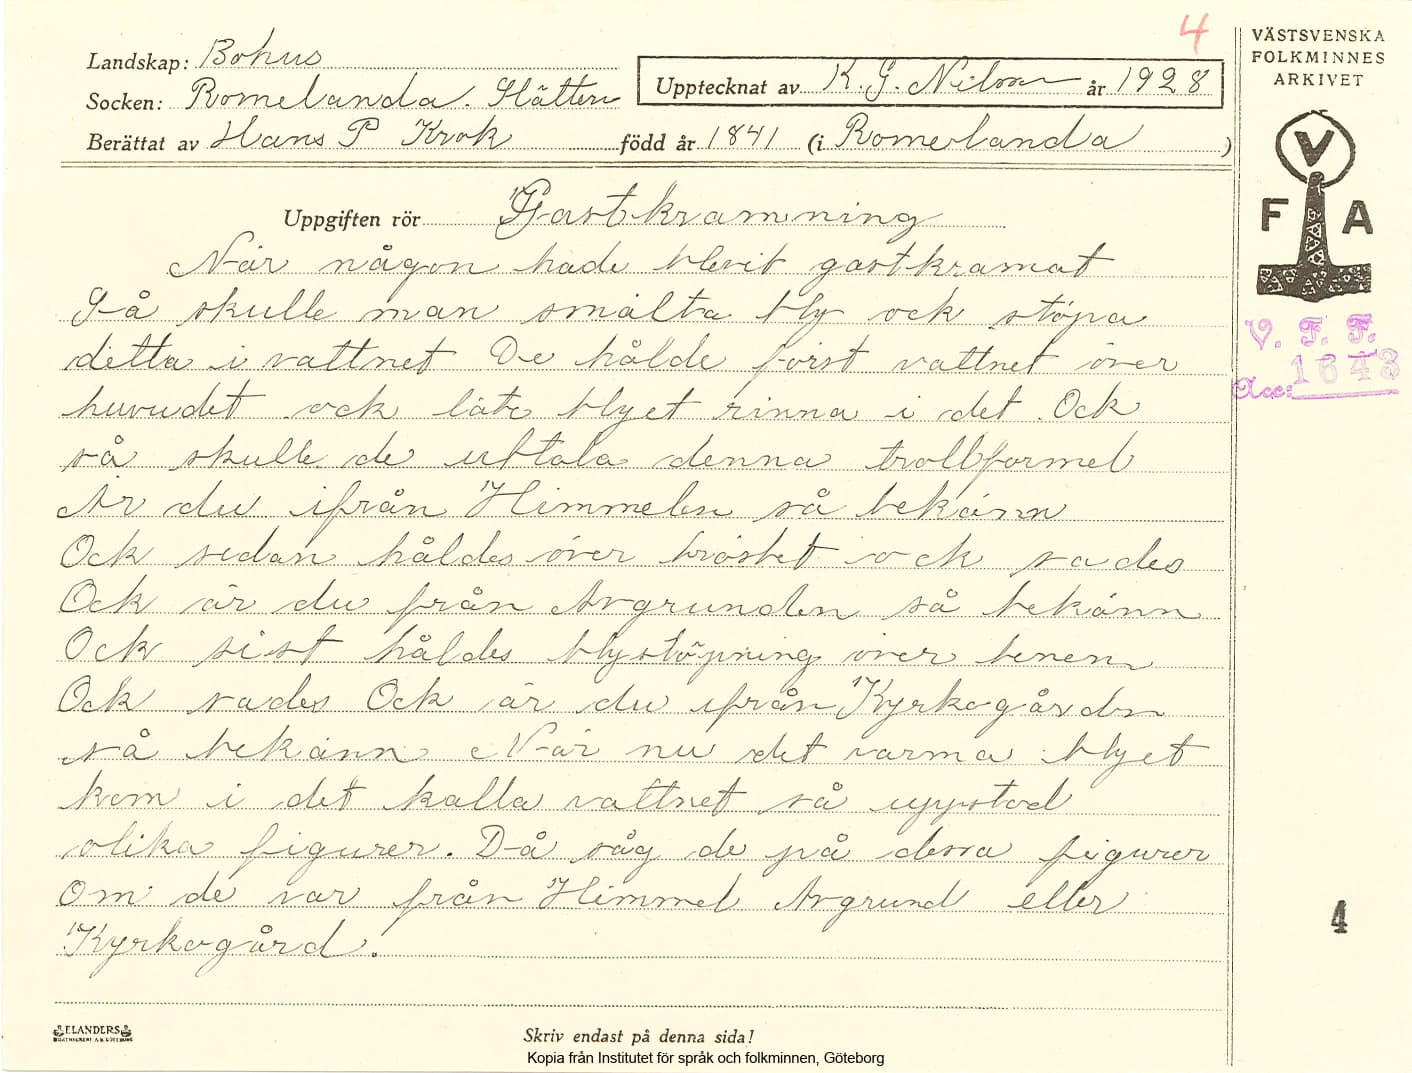 4
Landskap: Bohus
Socken: Romelanda. Slätten
Upptecknat av K. G. Nilson år 1928
Berättat av Hans P Krok född år 1841 (i Romelanda)
Uppgiften rör Gastkramning
När någon hade blevit gastkramat
Så skulle man smälta bly ock stöpa
detta i vattnet De hålde först vattnet över
huvudet ock läto blyet rinna i det. Ock
så skulle de uttala denna trollformel
Är du ifrån Himmelen så bekänn
Ock sedan håldes över bröstet ock sades
Ock är du från Avgrunden så bekänn
Ock sist håldes blystöpning över benen
Ock sades Ock är du ifrån Kyrkogården
så bekänn När nu det varma blyet
kom i det kalla vattnet så uppstod
olika figurer. Då såg de på dessa figurer
Om de var från Himmel Avgrund eller
Kyrkogård.
ELANDERS
BOKTRYCKERI A.B. GÖTEBORG
Skriv endast på denna sida!
Kopia från Institutet för språk och folkminnen, Göteborg
VÄSTSVENSKA
FOLKMINNES
ARKIVET
V
F A
V. F. F.
Acc: 1643
4